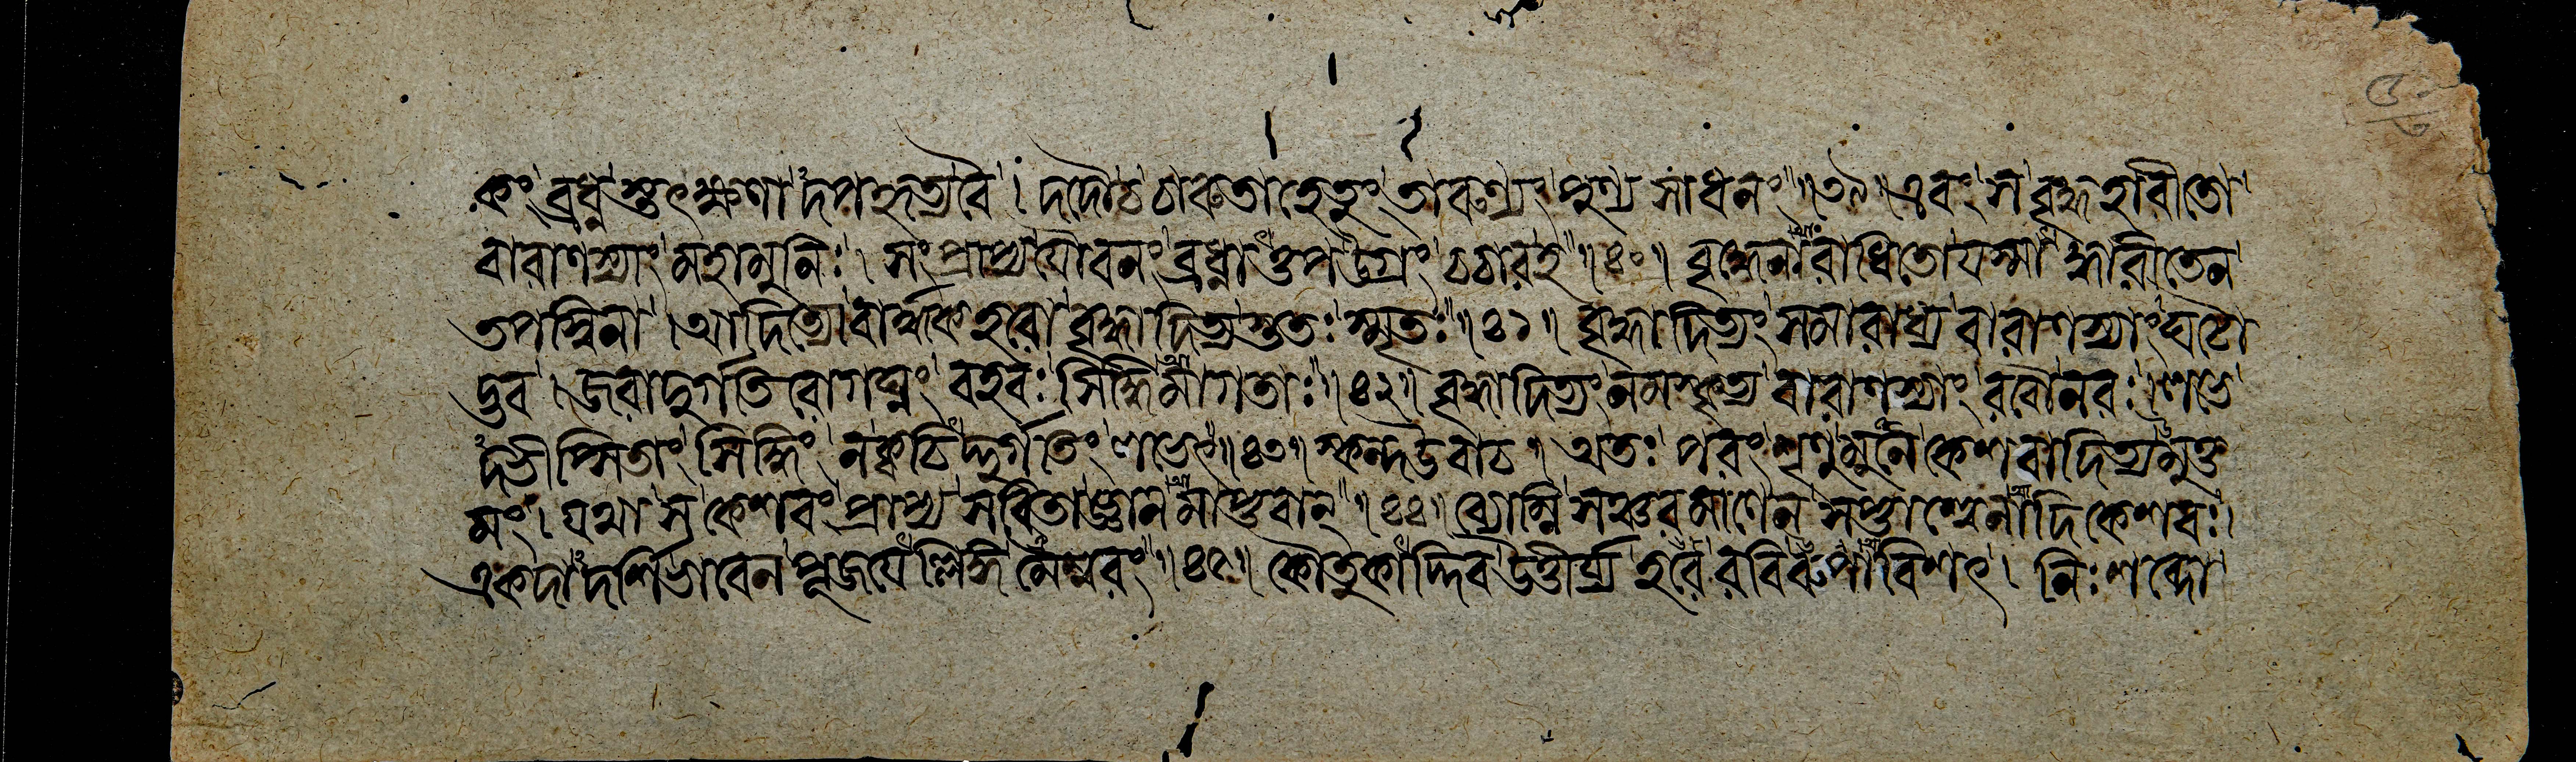 কং ব্রধ্নস্তৎক্ষণাদপহৃত্য বৈ । দদৌ চ চারুতাহেতুং তারুণ্যং পুণ্য সাধনং ॥ ৩৯ ॥ এবং স বৃদ্ধহারীতো
বারাণস্যাং মহামুনিঃ । সংপ্রাপ্য যৌবনং ব্রধ্নাত্তপ উগ্রং চচার হ ॥ ৪০ ॥ বৃদ্ধেনারাধিতো যস্মাদ্ধারীতেন
তপস্বিনা । আদিত্যো বার্দ্ধকহরো বৃদ্ধাদিত্যস্ততঃ স্মৃতঃ ॥ ৪১ ॥ বৃদ্ধাদিত্যং সমারাধ্য বারাণস্যাং ঘটো
দ্ভব । জরাদুর্গতি রোগঘ্নং বহবঃ সিদ্ধিমাগতাঃ ॥ ৪২ ॥ বৃদ্ধাদিত্যং নমস্কৃত্য বারাণস্যাং রবৌ নরঃ । লভে
দভীপ্সিতাং সিদ্ধিং ন ক্বচিদ্দুর্গতিং লভেৎ ॥ ৪৩ ॥ স্কন্দ উবাচ ॥ অতঃ পরং শৃণু মুনে কেশবাদিত্যমুত্ত
মং । যথা স কেশবং প্রাপ্য সবিতা জ্ঞানমাপ্তবান্ ॥ ৪৪ ॥ ব্যোম্নি সঞ্চরমাণেন সপ্তাশ্বেনাদিকেশবঃ ।
একদাদর্শি ভাবেন পূজয়ঁল্লিঙ্গমৈশ্বরং ॥ ৪৫ ॥ কৌতুকাদিব উত্তীর্য্য হরেরবিরুপাবিশৎ । নিঃশব্দো